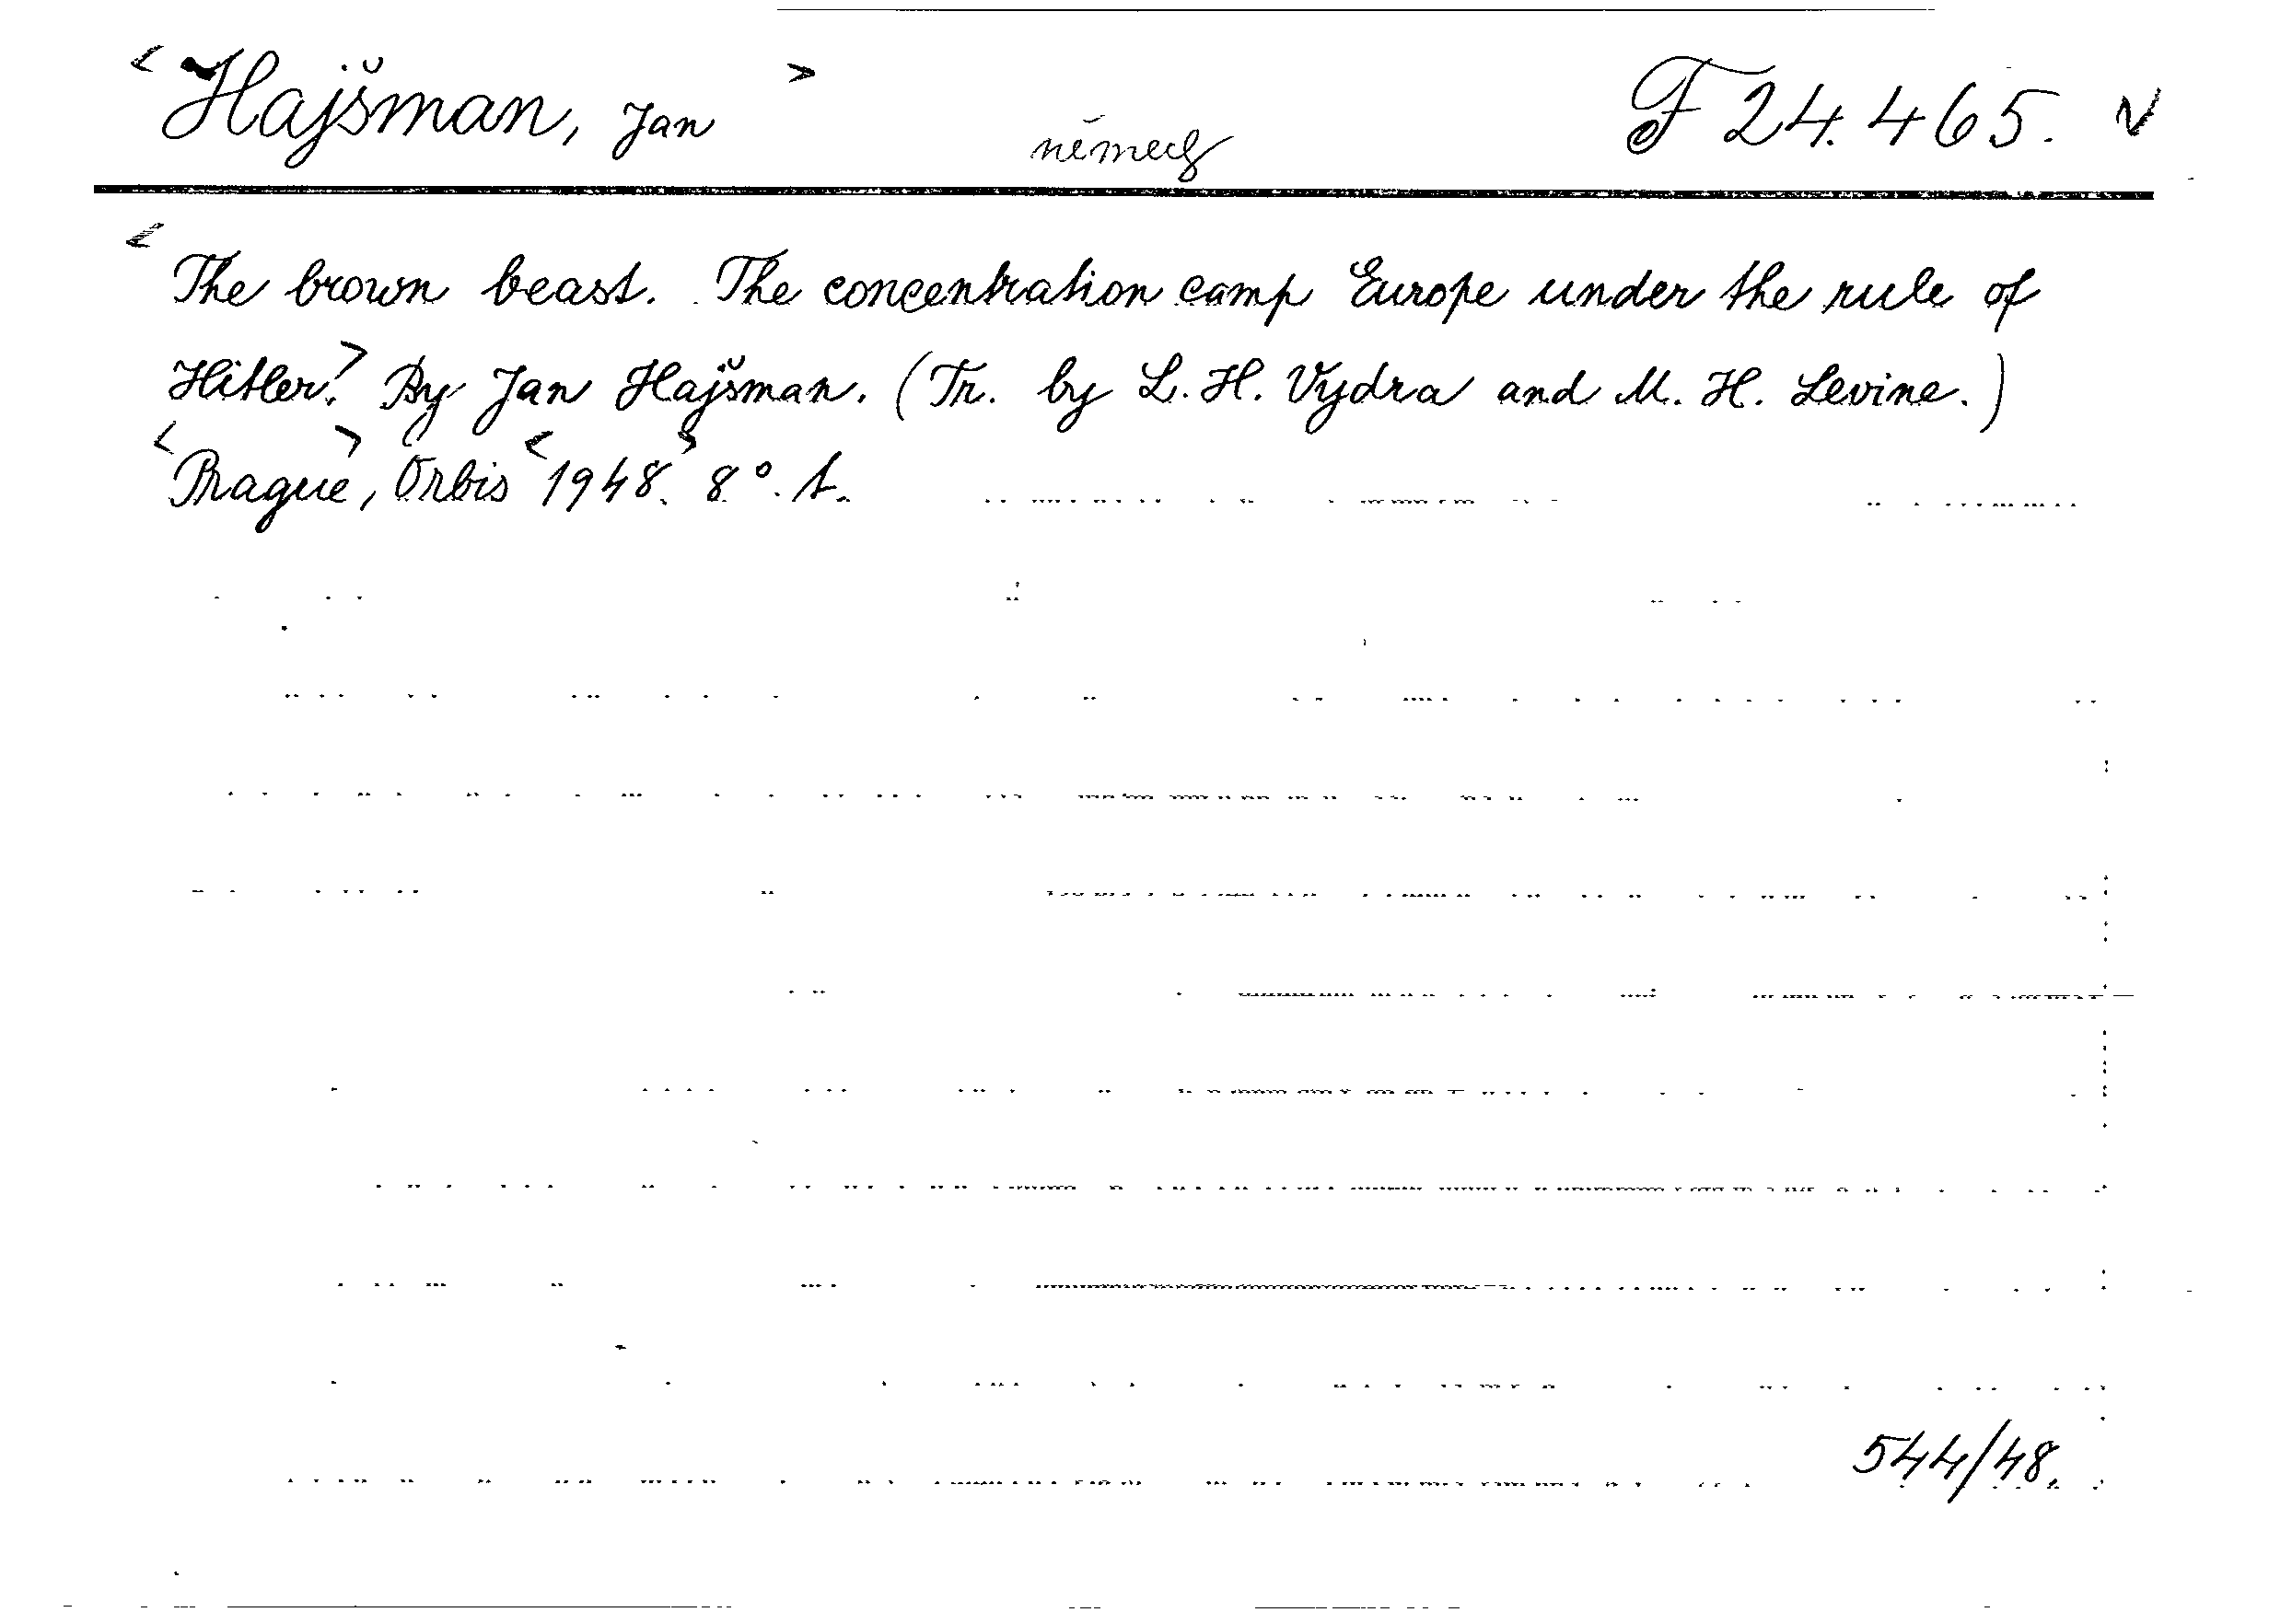 < Hajšman, Jan > F 24.465. v
< The brown beast. The concentration camp Europe under the rule of
Hitler.> By Jan Hajšman. (Tr. by L. H. Vydra and M. H. Levine.)
<Prague>, Orbis <1948.> 8°. t.
544/48.